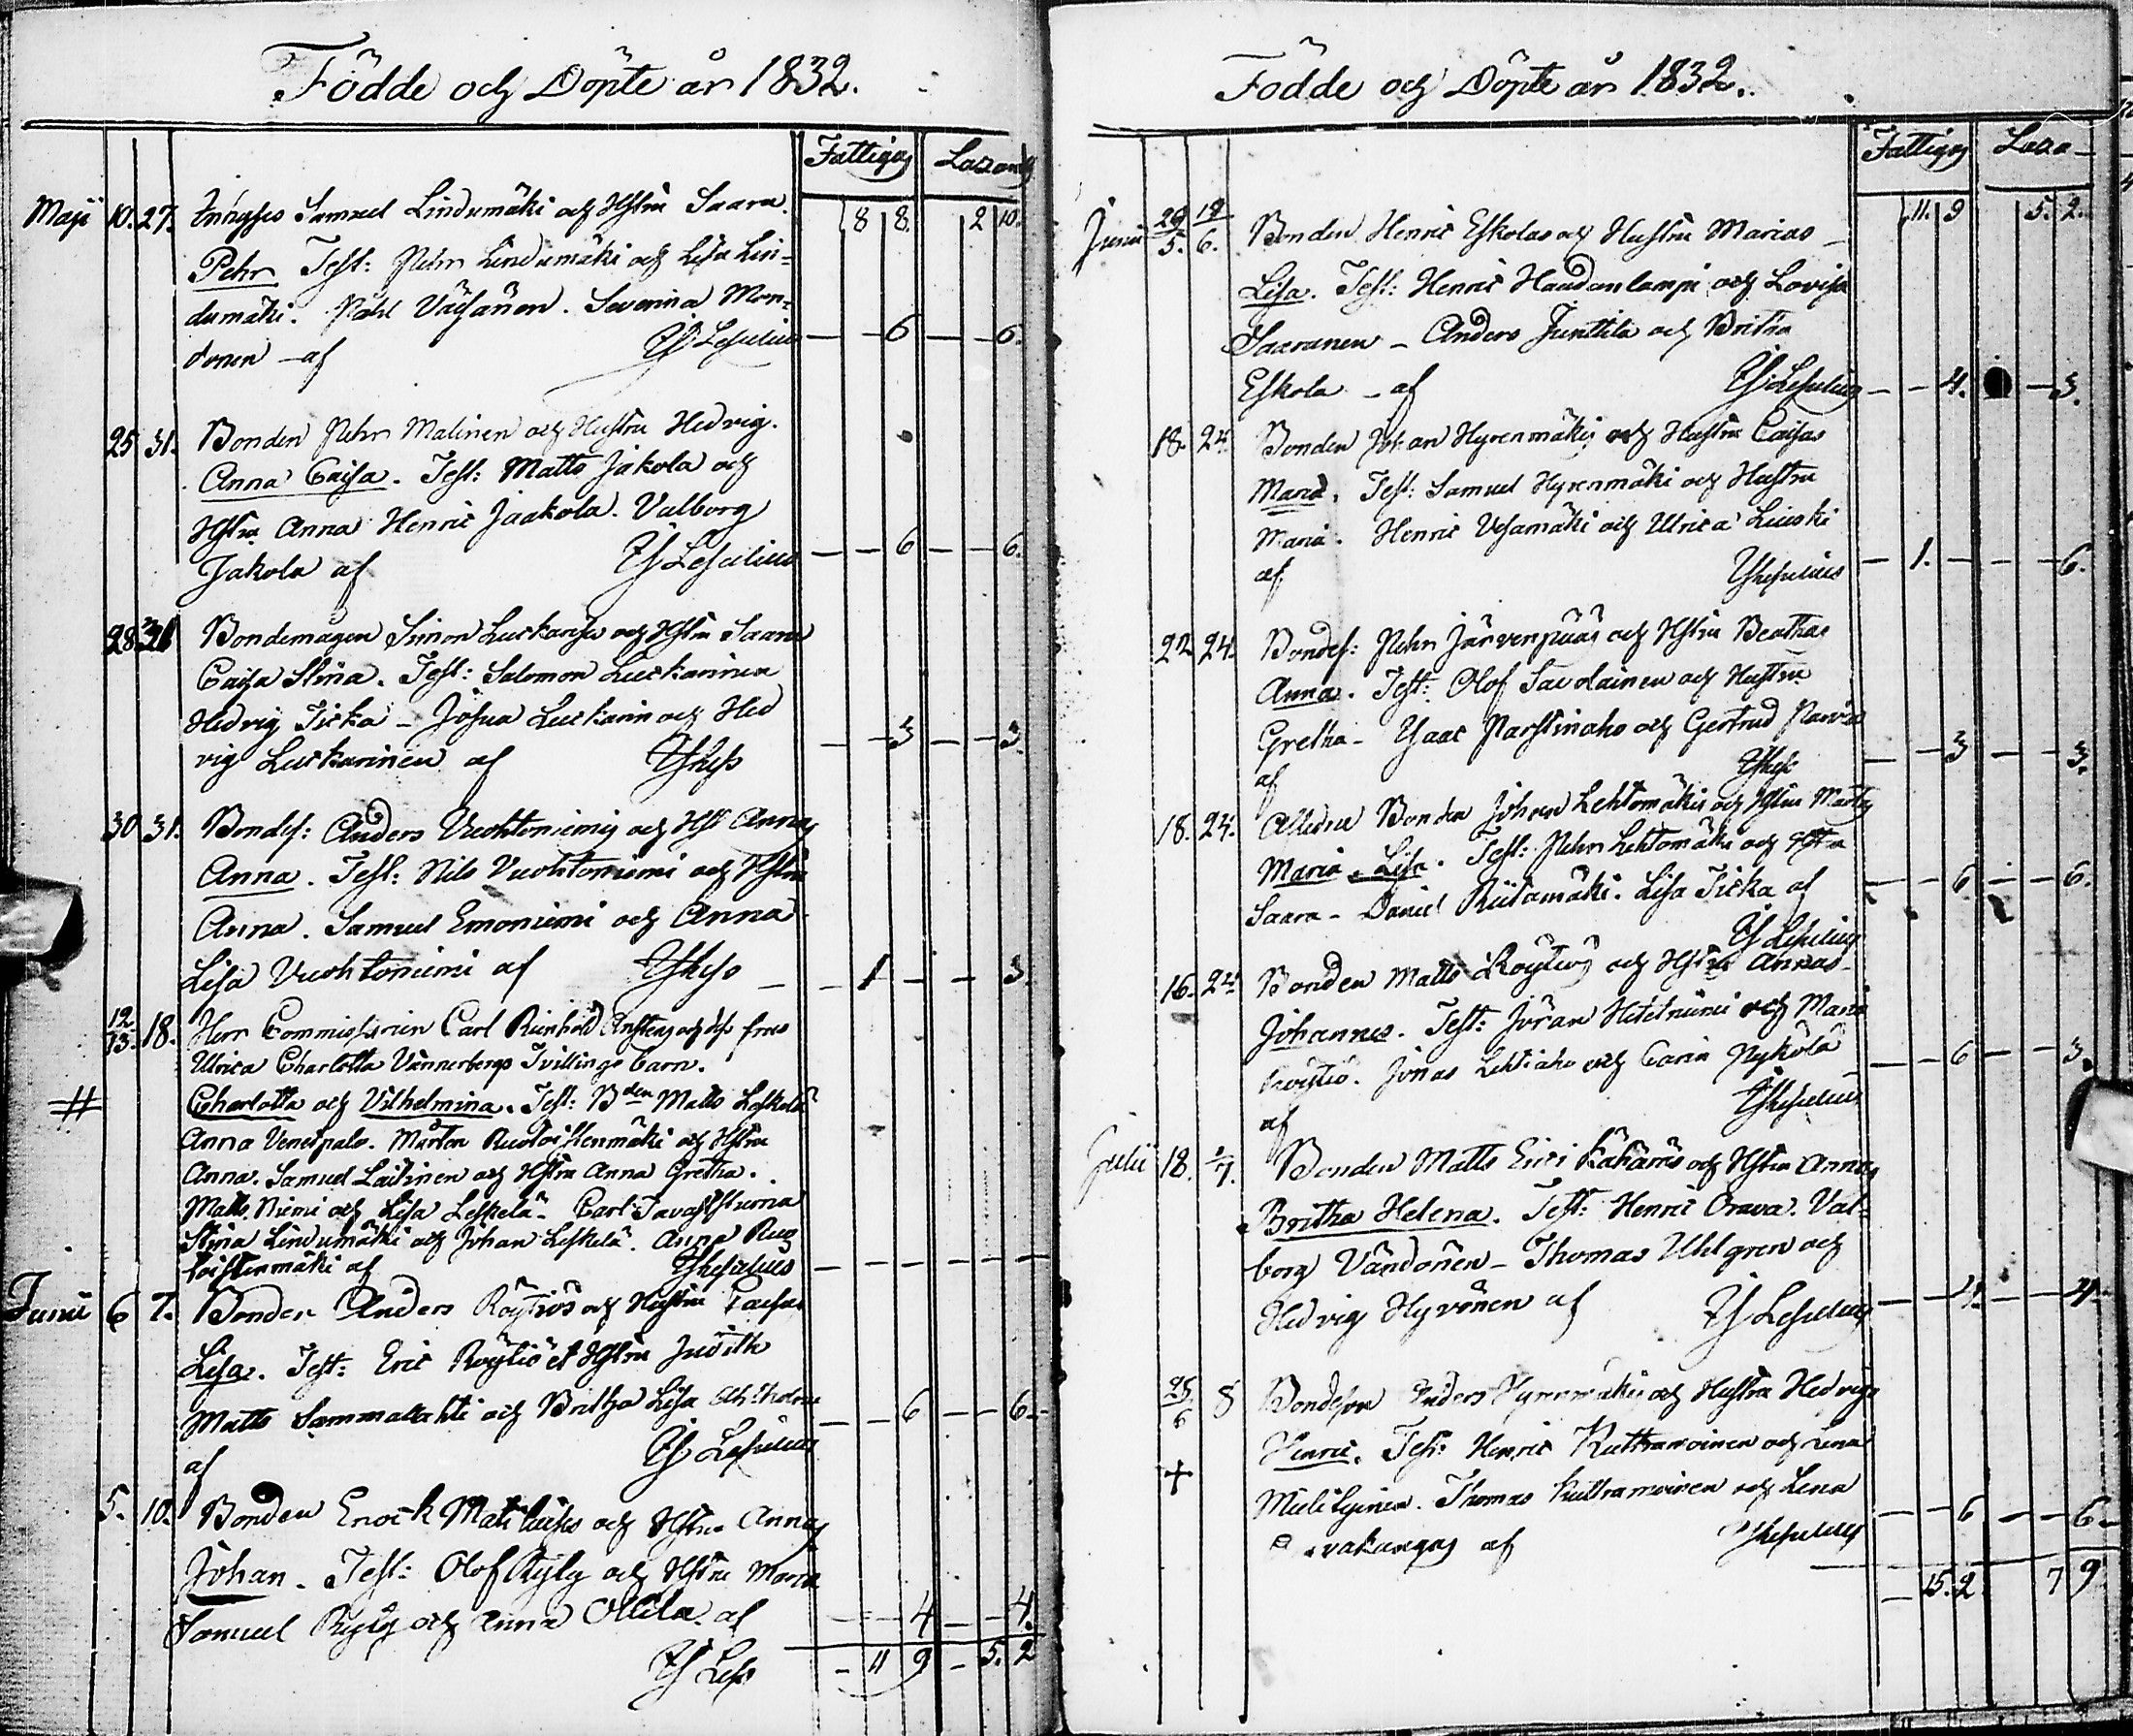 Födde och Döpte år 1832.
Fattigas Lazaret
Maji 10. 27. Samuel Lindumäki och Hstru Saara. 8 8. 2 10.
Pehr Test: Pehr Lindumäki och Lisa Lin=
dumäki. Påhl Väisänen. Severina Mon=
donen - af Lesselius — 6 — 6.
25 31. Bonden Pehr Malinen och Hustru Hedvig.
Anna Caisa. Test: Matts Jakola och
Hstru Anna Henric Jaakola. Valborg
Jakola af Lesselius — — 6 — — 6.
28 31 Bondemågen Simon Luckarises och Hstru Saara
Caisa Stina. Test: Salomon Luckarinen
Hedvig Ticka - Josua Luckarin och Hed
vig Luckarinen af — — 3 — — 3.
30 31. Bondes: Anders Vuohtoniemis och Hst Annas
Anna. Test: Nils Vuohtoniemi och Hstru
Anna. Samuel Emoniemi och Anna
Lisa Vuohtoniemi af — — 1 — — 3.
12/13. 18. Herr Commissarien Carl Reinhold och dess frus
Ulrica Charlotta Vännerbergs Tvillinge barn.
# Charlotta och Vilhelmina. Test: Bden Matts Leskelä
Anna Venetpalo. Mårten Ruotoistenmäki och Hstru
Anna. Samuel Laitinen och Hstru Anna Gretha.
Matts Niemi och Lisa Leskelä - Carl Tavaststierna
Stina Lindumäki och Johan Leskelä. Anna Ruo
toistenmäki af Lesselius — — — — — —
Junii 6 7. Bonden Anders Röytiös och Hustru Caisas
Lisa. Test: Eric Röytiö et Hstru Judith
Matts Sammallahti och Britha Lisa — — 6 — — 6 -
af Lesselius
5. 10. Bonden Enock och Hstru Annas
Johan. Test: Olof Kyly och Hstru Maria
Samuel Kyly och Anna Ollila af — — 4 — — 4.
Less - 11 9 - 5. 2
Födde och Döpte år 1832.
Fattigas Laza-
Junii 29/5. 12/6. Bonden Henric Eskolas och Hustru Marias - 11. 9 5. 2.
Lisa. Test: Henric Haudanlampi och Lovisa
Saaranen - Anders Junttila och Britha
Eskola - af Lesselius — — 4. — 3.
18. 24. Bonden Johan Hyvenmäkis och Hustru Caisas
Maria. Test: Samuel Hyvenmäki och Hustru
Maria. Henric Vesamäki och Ulrica Liuski
af Lesselius — 1. — — — 6.
22 24. Bondes: Pehr Järvenpääs och Hstru Beathas
Anna. Test: Olof Savolainen och Hustru
Gretha - Isaac Parstinaho och Gertrud
af — — 3 — — 3.
18. 24. Bonden Johan Lehtomäkis och Hstru
Maria Lisa. Test: Pehr Lehtomäki och Hstru
Saara - Daniel Riitamäki. Lisa Ticka af — — 6 — — 6.
Lesselius
16. 24. Bonden Matts Röytiös och Hstru Annas -
Johannes. Test: Jöran Heteniemi och Maria
Röytiö. Jonas Lehtiaho och Carin Nykölä — — 6 — — 3.
af Lesselius
Julii 18. 1/7. Bonden Matts Erici Kähärs och Hstru Annas
Britha Helena. Test: Henric Orava. Val=
borg Vändönen - Thomas Uhlgren och
Hedvig Hyvönen af Lesselius — — 4. — — 4.
25/6 8 Bondeson Anders Hyvenmäkis och Hustru Hedvigs
Henric. Test: Henric Kuthramoinen och Lena
+ Mielityinen. Thomas Kuthramoinen och Lena
af Lesselius — — 6 — — 6.
— 15. 2 7 9